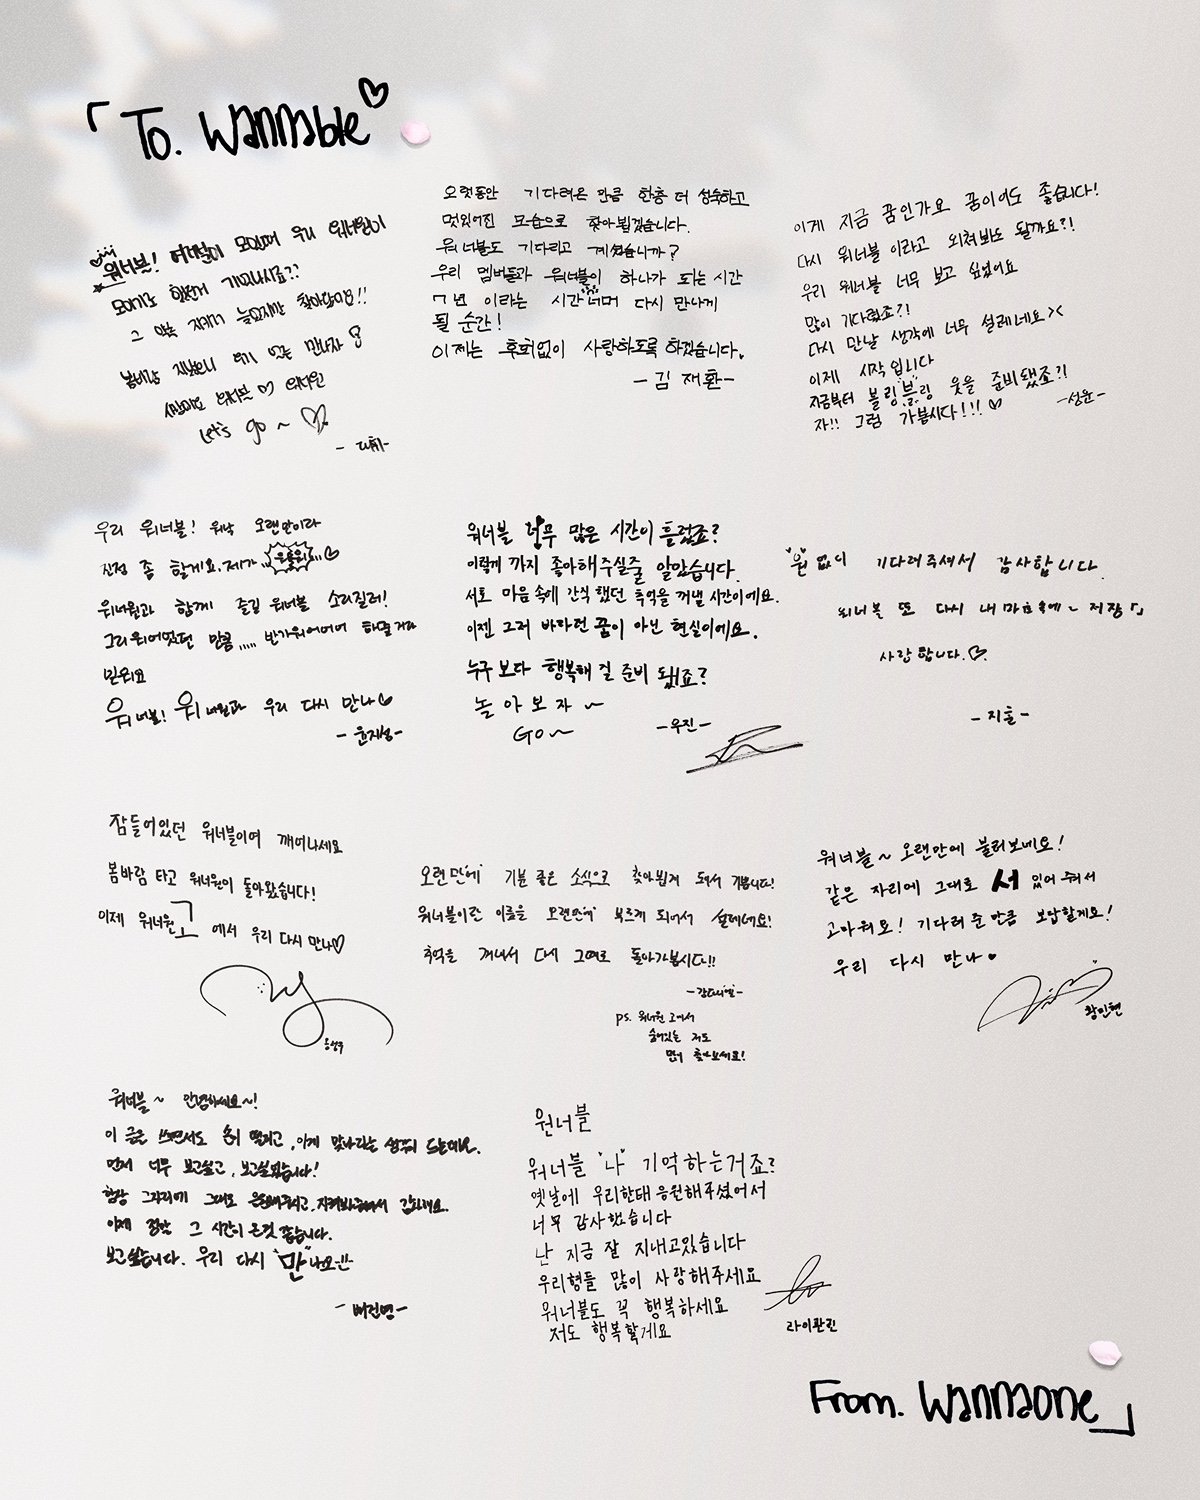 「To. Wannable♡
워너블! 여러분이 모일때 우리 워너원이
그 약속 지키러 늦었지만 찾아왔어요!!
Let's go ~ ♡
오랫동안 기다려온 만큼 한층 더 성숙하고
멋있어진 모습으로 찾아뵙겠습니다.
워너블도 기다리고 계셨습니까?
우리 멤버들과 워너블이 하나가 되는 시간
7년 이라는 시간 너머 다시 만나게
될 순간!
이제는 후회없이 사랑하도록 하겠습니다.
-김재환-
이게 지금 꿈인가요 꿈이어도 좋습니다!
다시 워너블 이라고 외쳐봐도 될까요?!
우리 워너블 너무 보고 싶었어요
많이 기다렸죠?!
다시 만날 생각에 너무 설레네요><
이제 시작입니다
지금부터 블링블링 웃을 준비됐죠?!
자!! 그럼 가봅시다!!! ♡
-성운-
우리 워너블! 워낙 오랜만이라
진정 좀 할게요. 제가
워너원과 함께 즐길 워너블 소리질러!
그리워어었던 만큼,,,,, 반가워어어어 해줄거라
믿어요
워너블! 워너원과 우리 다시 만나♡
-윤지성-
워너블 너무 많은 시간이 흘렀죠?
이렇게 까지 좋아해주실줄 알았습니다.
서로 마음 속에 간직했던 추억을 꺼낼 시간이에요.
이젠 그저 바라던 꿈이 아닌 현실이에요.
누구보다 행복해 질 준비 됐죠?
놀아보자~
Go~
-우진-
"원"없이 기다려주셔서 감사합니다.
워너블 또 다시 내 마음속에~ 저장「」
사랑합니다.♡
-지훈-
잠들어있던 워너블이여 깨어나세요
봄바람 타고 워너원이 돌아왔습니다!
이제 워너원 고 에서 우리 다시 만나♡
옹성우
오랜만에 기분 좋은 소식으로 찾아뵙게 돼서 기쁩니다!
워너블이란 이름을 오랜만에 부르게 되어서 설레네요!
추억을 꺼내서 다시 그때로 돌아가봅시다!!
-강다니엘-
ps. 워너원 고에서
숨어있는 저도
많이 찾아보세요!
워너블~ 오랜만에 불러보네요!
같은 자리에 그대로 서 있어 줘서
고마워요! 기다려 준 만큼 보답할게요!
우리 다시 만나♥
황민현
워너블~ 안녕하세요~!
이 글을 쓰면서도 손이 떨리고, 이게 맞나라는 생각이 드는데요.
먼저 너무 보고싶고, 보고싶었습니다!
항상 그자리에 그대로 응원해주시고, 지켜봐주셔서 감사해요.
이제 정말 그 시간이 온것 같습니다.
보고싶습니다. 우리 다시 "만"나요!!
-배진영-
원너블
워너블 "나" 기억하는거죠?
옛날에 우리한태 응원해주셨어서
너무 감사했습니다
난 지금 잘 지내고있습니다
우리형들 많이 사랑해주세요
워너블도 꼭 행복하세요
저도 행복할게요
라이관린
From. Wannaone」